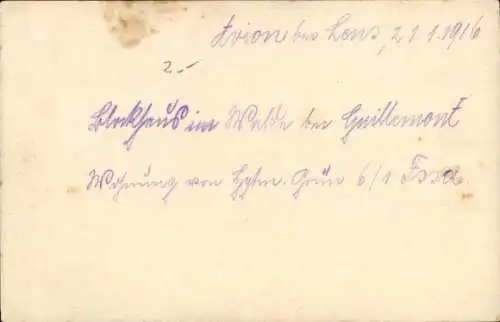 Avion bei Lens, 21 1. 1916
2.-
Blockhaus im Walde bei Guillemont
Wohnung von Hptm. Grün 6/1 Fssa